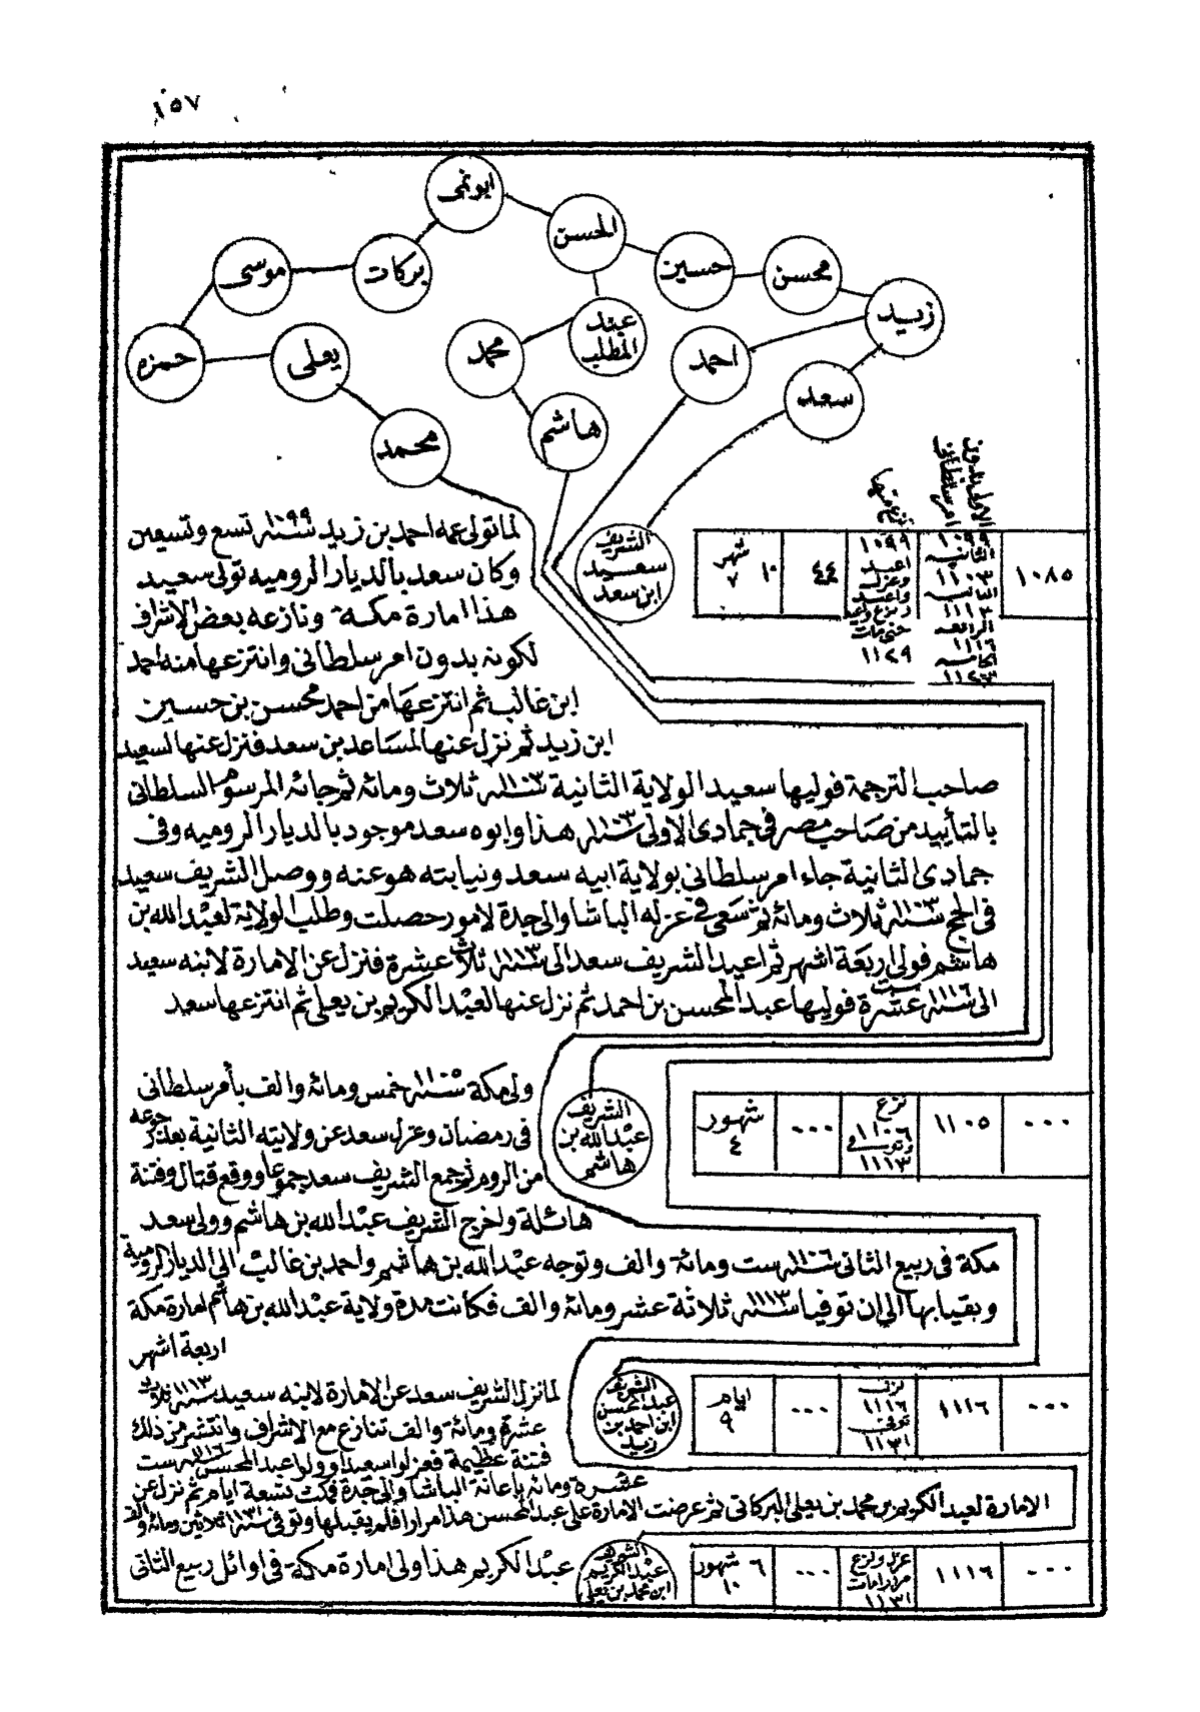 ١٥٧
ابونمى
الحسن
حسين
محسن
زيد
بركات
موسى
حمزه
يعلى
محمد
عبد المطلب
محمد
هاشم
احمد
سعد
الاولى بدون امر سلطانى ١٠٩٩
الثانيه ١١٠٣
الثالثه ١١١٣
الرابعه ١١١٦
الخامسه
نزع منها ١٠٩٩
اعيد وعزل واعيد
حتى مات ١١٢٩
١٠٨٥
٤٤
١٠ شهر ٧
الشريف سعيد ابن سعد
لما تولى عمه احمد بن زيد سنة ١٠٩٩ تسع وتسعين
وكان سعد بالديار الروميه تولى سعيد
هذا امارة مكة ونازعه بعض الاشراف
لكونه بدون امر سلطانى وانتزعها منه احمد
ابن غالب ثم انتزعها من احمد محسن بن حسين
ابن زيد ثم نزل عنها لمساعد بن سعد فنزل عنها لسعيد
صاحب الترجمة فوليها سعيد الولاية الثانية سنة ١١٠٣ ثلاث ومائه ثم جائه المرسوم السلطانى
بالتأييد من صاحب مصر فى جمادى الاولى سنة ١١٠٣ هذا وابوه سعد موجود بالديار الروميه وفى
جمادى الثانية جاء امر سلطانى بولاية ابيه سعد ونيابته هو عنه ووصل الشريف سعيد
فى الحج سنة ١١٠٣ ثلاث ومائة ثم سعى فى عزله الباشا والى جدة لامور حصلت وطلب الولاية لعبد الله بن
هاشم فولى اربعة اشهر ثم اعيد الشريف سعد الى سنة ١١١٣ ثلاث عشرة فنزل عن الامارة لابنه سعيد
الى سنة ١١١٦ ست عشرة فوليها عبد المحسن بن احمد ثم نزل عنها لعبد الكريم بن يعلى ثم انتزعها سعد
٠٠٠
١١٠٥
نزع ١١٠٦ وتوفى ١١١٣
٠٠٠
شهور ٤
الشريف عبد الله بن هاشم
ولى مكة سنة ١١٠٥ خمس ومائه والف بأمر سلطانى
فى رمضان وعزل سعد عن ولايته الثانية بعد رجوعه
من الروم ثم جمع الشريف سعد جموعا ووقع قتال وفتنة
هائلة واخرج الشريف عبد الله بن هاشم وولى سعد
مكة فى ربيع الثانى سنة ١١٠٦ ست ومائة والف وتوجه عبد الله بن هاشم واحمد بن غالب الى الديار الرومية
وبقيا بها الى ان توفيا سنة ١١١٣ ثلاثة عشر ومائه والف فكانت مدة ولاية عبد الله بن هاشم امارة مكة
اربعة اشهر
٠٠٠
١١١٦
نزل ١١١٦ توفى ١١٣١
٠٠٠
ايام ٩
الشريف عبد المحسن ابن احمد بن زيد
لما نزل الشريف سعد عن الامارة لابنه سعيد سنة ١١١٣ ثلاث
عشرة ومائة والف تنازع مع الاشراف وانتشر من ذلك
فتنة عظيمة فعزلوا سعيدا وولوا عبد المحسن سنة ١١١٦ ست
عشرة ومائه باعانة الباشا والى جدة فمكث تسعة ايام ثم نزل عن
الامارة لعبد الكريم بن محمد بن يعلى البركاتى ثم عرضت الامارة على عبد المحسن هذا مرارا فلم يقبلها وتوفى سنة ١١٣١ ثلاثين ومائه والف
٠٠٠
١١١٦
عزل ونزع مرارا مات ١١٣١
٠٠٠
٦ شهور ١٠
الشريف عبد الكريم ابن محمد بن يعلى
عبد الكريم هذا ولى امارة مكة فى اوائل ربيع الثانى